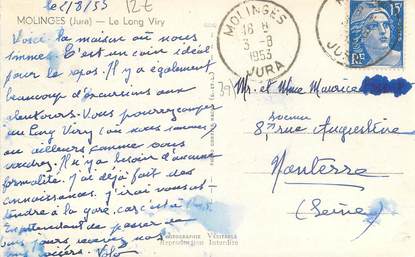 le 1/8/53
12E
MOLINGES (Jura) — Le Long Viry
Voici la maison où nous
sommes. C'est un coin idéal
pour le repos. Il y a également
beaucoup d'excursions aux
alentours. Vous pouvez camper
au Long Viry (où nous sommes)
ou ailleurs comme vous
voudrez. Il n'y a besoin d'aucune
formalité. J'ai déjà fait des
connaissances. J'irai vous at-
tendre à la gare, car c'est à
En attendant de passer de
bons jours recevez nos
MOLINGES
18 H
3 - 8
1953
JURA
15F
RF
39
Mr. et Mme Maurice
8, rue Augustine
Nanterre
(Seine)
PHOTOGRAPHIE VÉRITABLE
Reproduction Interdite